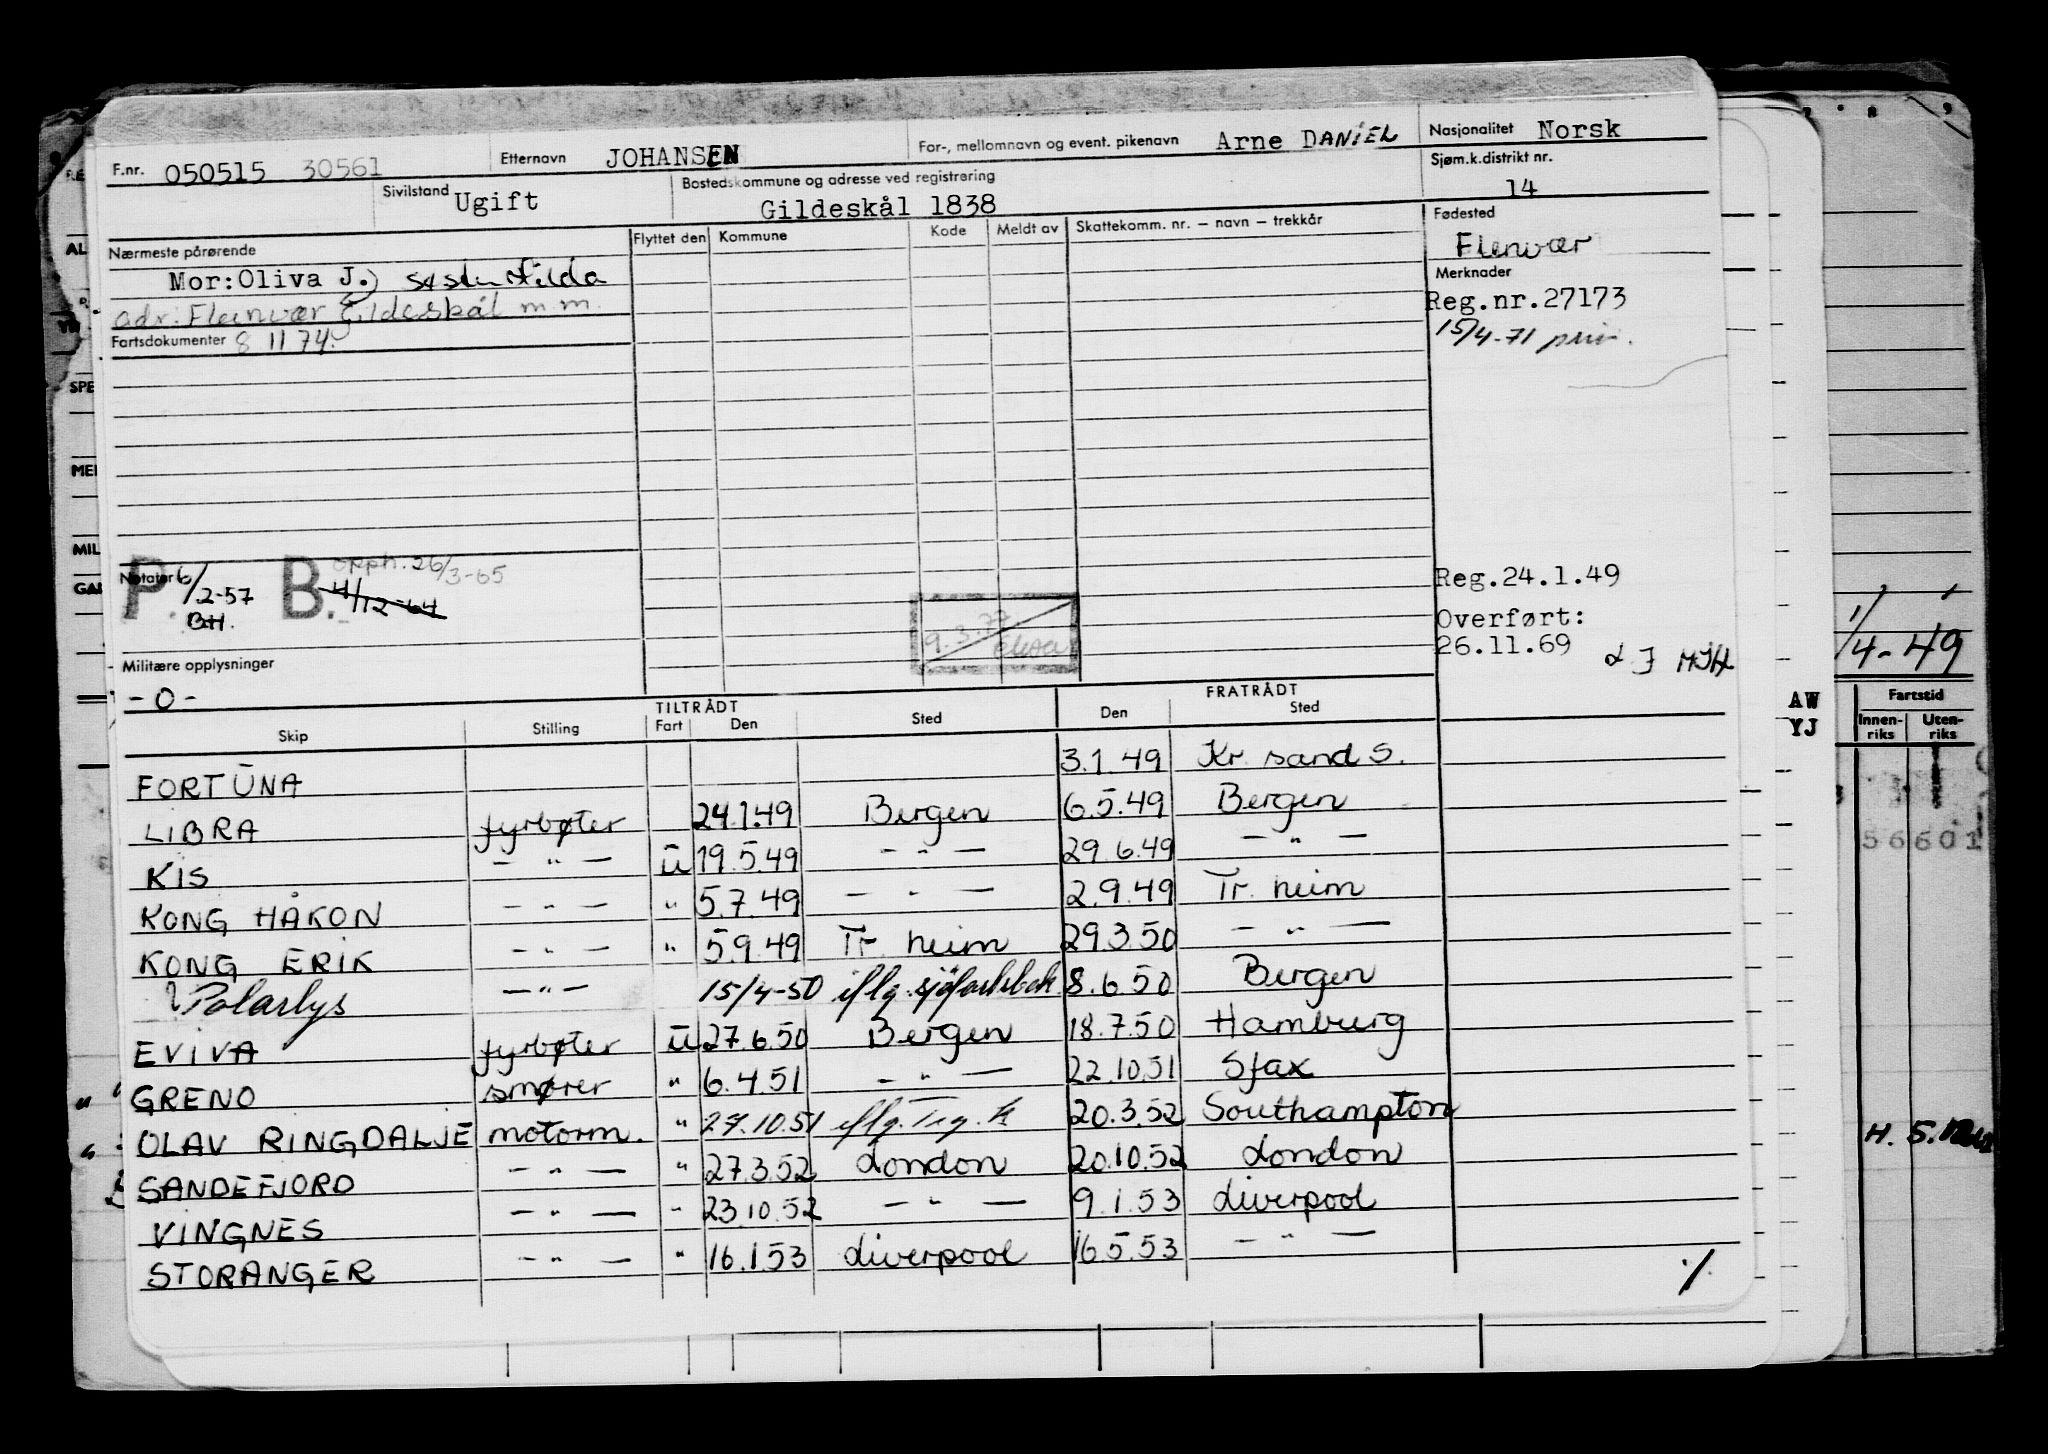 F.nr. 050515 30561 Etternavn JOHANSEN For-, mellomnavn og event. pikenavn Arne DANIEL Nasjonalitet Norsk
Sivilstand Ugift Bostedskommune og adresse ved registrering Gildeskål 1838 Sjøm.k.distrikt nr. 14
Nærmeste pårørende Flyttet den Kommune Kode Meldt av Skattekomm. nr. – navn – trekkår Fødested
Fleinvær
Mor: Oliva J.) Hilda
Merknader
adr. Fleinvær Gildeskål m.m.
Reg.nr.27173
Fartsdokumenter 8 11 74.
15/4-71
Notater P. 6/2-57 BH. B. opph. 26/3-65
4/12-64
9.3.77
Reg.24.1.49
Overført:
26.11.69
MJH
Militære opplysninger
- 0 -
TILTRÅDT FRATRÅDT
Skip Stilling Fart Den Sted Den Sted
FORTUNA 3.1.49 Kr. sand S.
LIBRA fyrbøter 24.1.49 Bergen 6.5.49 Bergen
KIS — " — U 19.5.49 — " — 29.6.49 — " —
KONG HÅKON — " — " 5.7.49 — " — 2.9.49 Tr. heim
KONG ERIK — " — " 5.9.49 Tr. heim 29.3.50 — " —
Polarlys — " — 15/4-50 iflg. 8.6.50 Bergen
EVIVA fyrbøter U 27.6.50 Bergen 18.7.50 Hamburg
GRENO smører " 6.4.51 — " — 22.10.51 Sfax
OLAV RINGDAL JE motorm. " 27.10.51 iflg. 20.3.52 Southampton
SANDEFJORD — " — " 27.3.52 London 20.10.52 London
VINGNES — " — " 23.10.52 — " — 9.1.53 Liverpool
STORANGER — " — " 16.1.53 Liverpool 16.5.53 — " —
./.
AL
SPE
MIL
AW
YJ
1/4-49
Fartstid
Innen-riks Uten-riks
56601